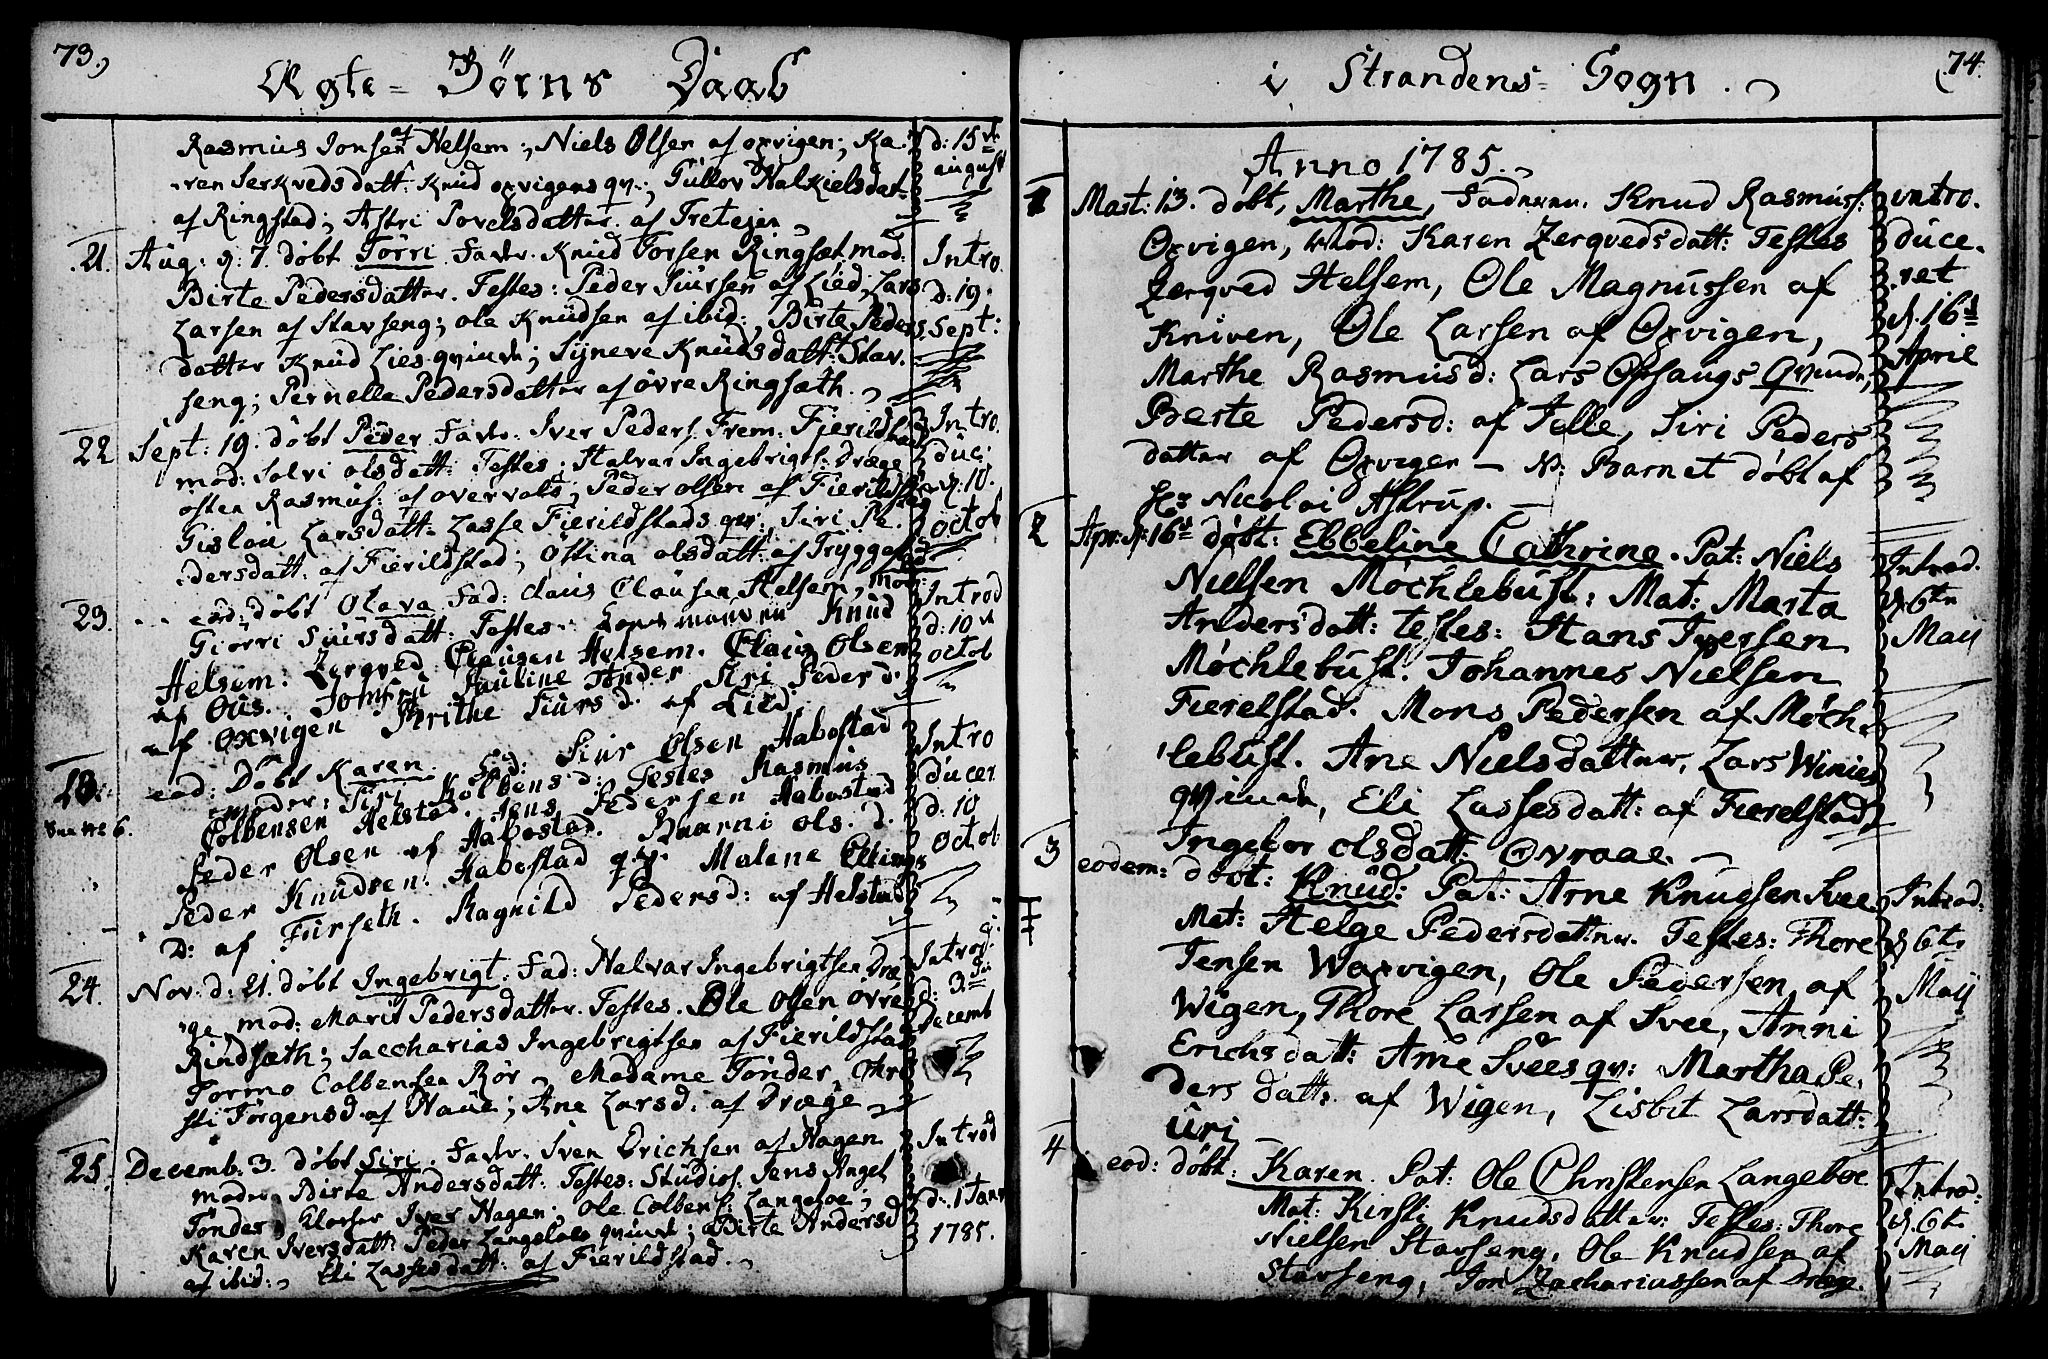 73.
Ægte-Börns Daab
Rasmus Jonsen af Helsem; Niels Olsen af oxvigen; Ka-
ren Serkvedsdatt: Knud oxvigens qv:; Gullov Halkielsdat.
af Ringstad; Astri Povelsdatter af Tretejen
d: 15de
august
21. Aug: d: 7. döbt Torri Fader. Knud Torsen Ringsæt mod:
Birte Pedersdatter. Testes: Peder Siursen af Lied, Lars
Larsen af Stavseng; ole Knudsen af ibid:, Birte Peders
datter Knud Lies qvinde; Syneve Knudsdatt: Stav-
seng; Pernelle Pedersdatter af övre Ringsæth.
Intro.
d: 19.
Sept:
22 Sept: 19. döbt Peder Fader: Iver Peders:
mod: Solvi olsdatt: Testes: Halvar Ingebrigts: Dræge
osten Rasmus: af overvold; Peder olsen af Fierildstad
Gislou Larsdatt: Lasse Fierildstads qv: Siri Pe-
dersdatt: af Fierildstad; Ostina olsdatt: af Tryggestad
Intro.
duc:
d: 10.
octob
23. eod: döbt Olava Fad: Claus Clausen Helsem, Mod:
Giorri Siursdatt: Testes: Knud
Helsem: Zerqved Clausen Helsem. Claus Olsen
af Ous. Jomfru Pauline Tönder Siri Peder d.
af Oxvigen Marithe Siurs d. af Lied.
Introd
d: 10de
octob
eod: Döbt Karen. Fad: Siur Olsen Aabostad
Moder: Siri Kolbens d: Testes Rasmus
Colbensen Helstad. Jens Pedersen Aabostad
Peder Olsen af Aabostad. Baarni ols. d.
Peder Knudsen Aabostad qv: Malene Ellings
D: af Furseth. Ragnild Pedersd: af Helstad
Intro
ducer
d: 10
Octob
24. Nov: d: 21. döbt Ingebrigt. Fad: Halvar Ingebrigtsen Dræ-
ge mod: Marit Pedersdatter. Testes. Ole Olsen övre
Rindsæth; Saccharias Ingebrigtsen af Fierildstad
Tormo Colbensen Rör Madame Tönder, Chri
sti Törgensd. af Haue; Ane Larsd. af Dræge
Introd.
d: 3.
Decemb
25. Decemb: 3. döbt Siri. Fader. Sven Erichsen af Hagen
moder Birte Andersdatt: Testes: Studios. Jens Angel
Tönder; Klocker Iver Hagen. Ole Colbens: Langeloe;
Karen Iversdatt: Peder Langeloes qvinde; Birte Andersd
af ibid: Eli Lassesdatt: af Fierildstad.
Introd
d: 1 Janv
1785.
74.
i Strandens Sogn.
Anno 1785.
1 Mart: 13. döbt, Marthe, Faderen. Knud Rasmuss:
Oxvigen, Mod: Karen Zerqvedsdatt: Testes
Zerqved Helsem, Ole Magnussen af
Kniven, Ole Larsen af Oxvigen,
Marthe Rasmusd: Lars Opsaugs Qvinde,
Berte Pedersd: af Telle, Siri Peders
datter af Oxvigen – N: Barnet döbt af
Hr Nicolai Astrup.
intro.
duce.
ret
d. 16de
April
2 Apr: d: 16de döbt: Ebbeline Cathrine. Pat: Niels
Nielsen Möchlebust: Mat: Marta
Andersdatt: testes: Hans Iversen
Möchlebust. Johannes Nielsen
Fierelstad. Mons Pedersen af Möch-
lebust. Ane Nielsdatter, Lars Winies
qvinde, Eli Lassesdatt: af Fierelstad
Ingebor olsdatt: Ovraae.
Introd.
d. 6te
Maii
3 eodem: döbt: Knud: Pat: Arne Knudsen Svee
Mat: Helge Pedersdatter. Testes: Thore
Jensen Waxvigen, Ole Pedersen af
Wigen, Thore Larsen af Svee, Anni
Erichsdatt: Arne Svees qv: Martha Pe-
dersdatt: af Wigen, Lisbet Larsdatt:
Uri
Introd:
d. 6te
Maii
4 eod: döbt: Karen. Pat: Ole Christensen Langeboe
Mat: Kirsti Knudsdatter: Testes: Thore
Nielsen Stavseng, Ole Knudsen af
Stavseng, Jon Zachariassen af Dræge.
Introd:
d. 6te
Maii